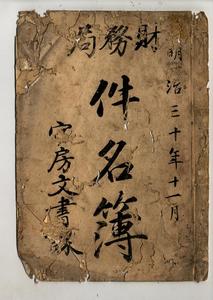 明治三十年十一月
財務局
件名簿
官房文書課